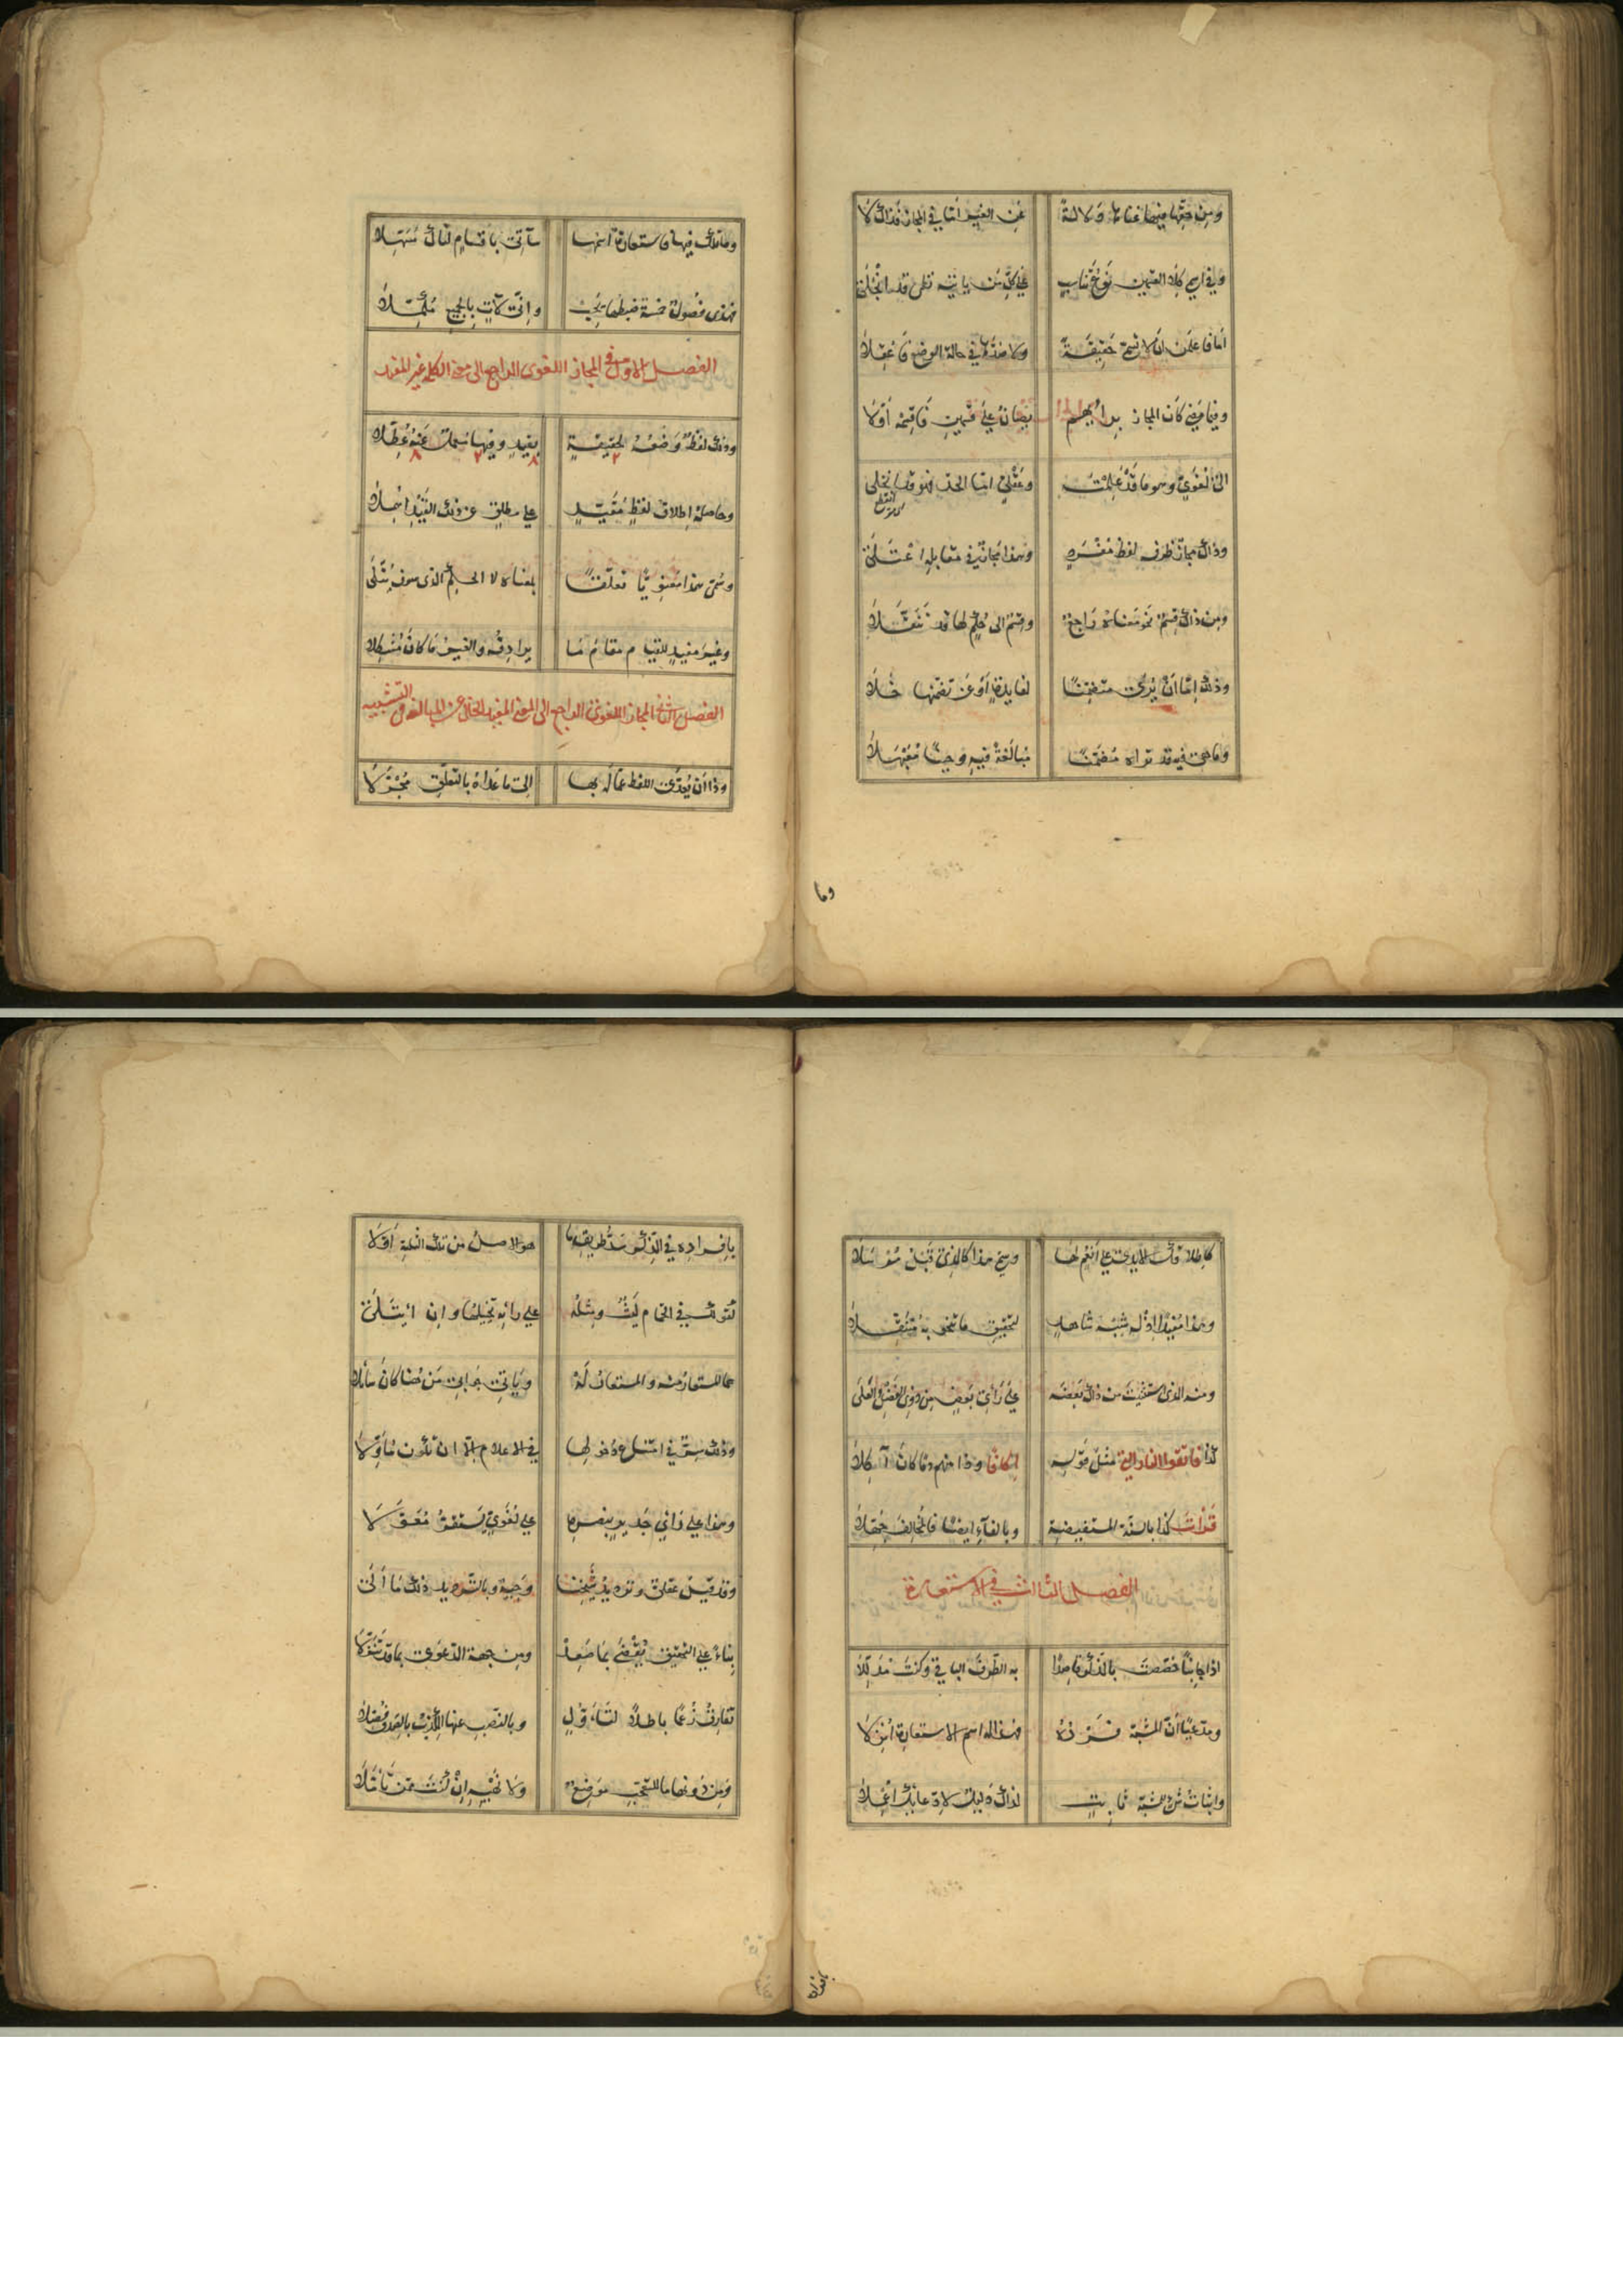 ومن حقها فيها غناها دلالة عن الغير أما في المجاز فذاك لا
وفي اسم كلا القسمين نوع تناسب على كل من يأتيه نقل قد انجلى
أما فاعلمن أن لا تسمى حقيقة ولا ضدها في حالة الوضع فاعقلا
وفيما مضى كان المجاز برأيهم بيانا على قسمين فاقسمه أولا
الى لغوي وهو ما قد علمت وعقلي اما الحد فهو قد انجلى
وذاك مجاز ظرف لفظ مفرد وهذا مجاز في مقابله اعتلى
ومن ذاك قسم نحو معناه راجع وقسم الى حكم لها قد تنقلا
وذلك اما أن يرى متضمنا لفايدة أو عن تضمنها خلا
وما هي فيه قد تراه مضمنا مبالغة فيه وحينا مبهلا
وما
وما تلك فيها فاستعارة اسمها سآتي باقسام لتلك مسهلا
فهذي فصول خمسة ضبطها يجب واني لآت بالجميع مكملا
الفصل الاول في المجاز اللغوي الراجع الى معنى الكلمة غير المفيد
وذلك لفظ وضعه لحقيقة بقيد وفيها استعملت عنه عطلا
وحاصله اطلاق لفظ مقيد على مطلق عن ذلك القيد اسجلا
وسمي هذا معنويا تعلقا بمعناه لا الحكم الذي سوف يتلى
وغير مفيد للقيام مقام ما يرادفه والغير ما كان مشكلا
الفصل الثاني المجاز اللغوي الراجع الى المعنى المفيد الخالي عن المبالغة في التشبيه
وذا أن يعدى اللفظ عما له بها الى ما عداه بالتعلق مجزلا
كاطلاقك الايدي على أنعم لها ورسم هذا كالذي قبل مرسلا
وهذا مفيد اذ له شبه شاهد لتحقيق ما تنحو به متنقلا
ومنه الذي استثنيت من ذاك بعضه على رأي بعض من ذوي الفضل والعلى
كذا فاتقوا النار التي مثل قوله اكافا وذا منهم وما كان آكلا
قرأت كذا بالسنة المستفيضة وبالفاء ايضا فالمخالف جهلا
الفصل الثالث في الاستعارة
اذا جانبا خصصت بالذكر قاصدا به الطرف الباقي وكنت مدللا
ومدعيا أن المشبه فرد ذه فهذا له اسم الاستعارة أنزلا
واثبات شرح للمشبه ثابت لذاك دليل لادعايك اعملا
بافراده
بافراده في الذكر سد طريق ما هو الاصل من تلك القلة أولا
كقولك في الحمام ليث ومثله على رأيه تخييلها وان ائتلى
هما للمستعار منه والمستعار له ويأتي جوابي من هنا كان سائلا
وذلك سر في امتناع دخولها في الاعلام الا ان تكون مأولا
وهذا على رأي جدير بنصره على لغوي يستقر معولا
وقد قيل عقلي وترديد شيخنا وجيه وبالترديد ذلك ما ألى
بناء على التحقيق يقضي بما ضعف ومن جهة الدعوى بما قد تنزلا
تفارق زعما باطلا لتأول وبالنصب عنها الكذب بالصدق فصلا
ومن دونها ما للتعجب موضع ولا نهيه ان كنت ممن تأملا